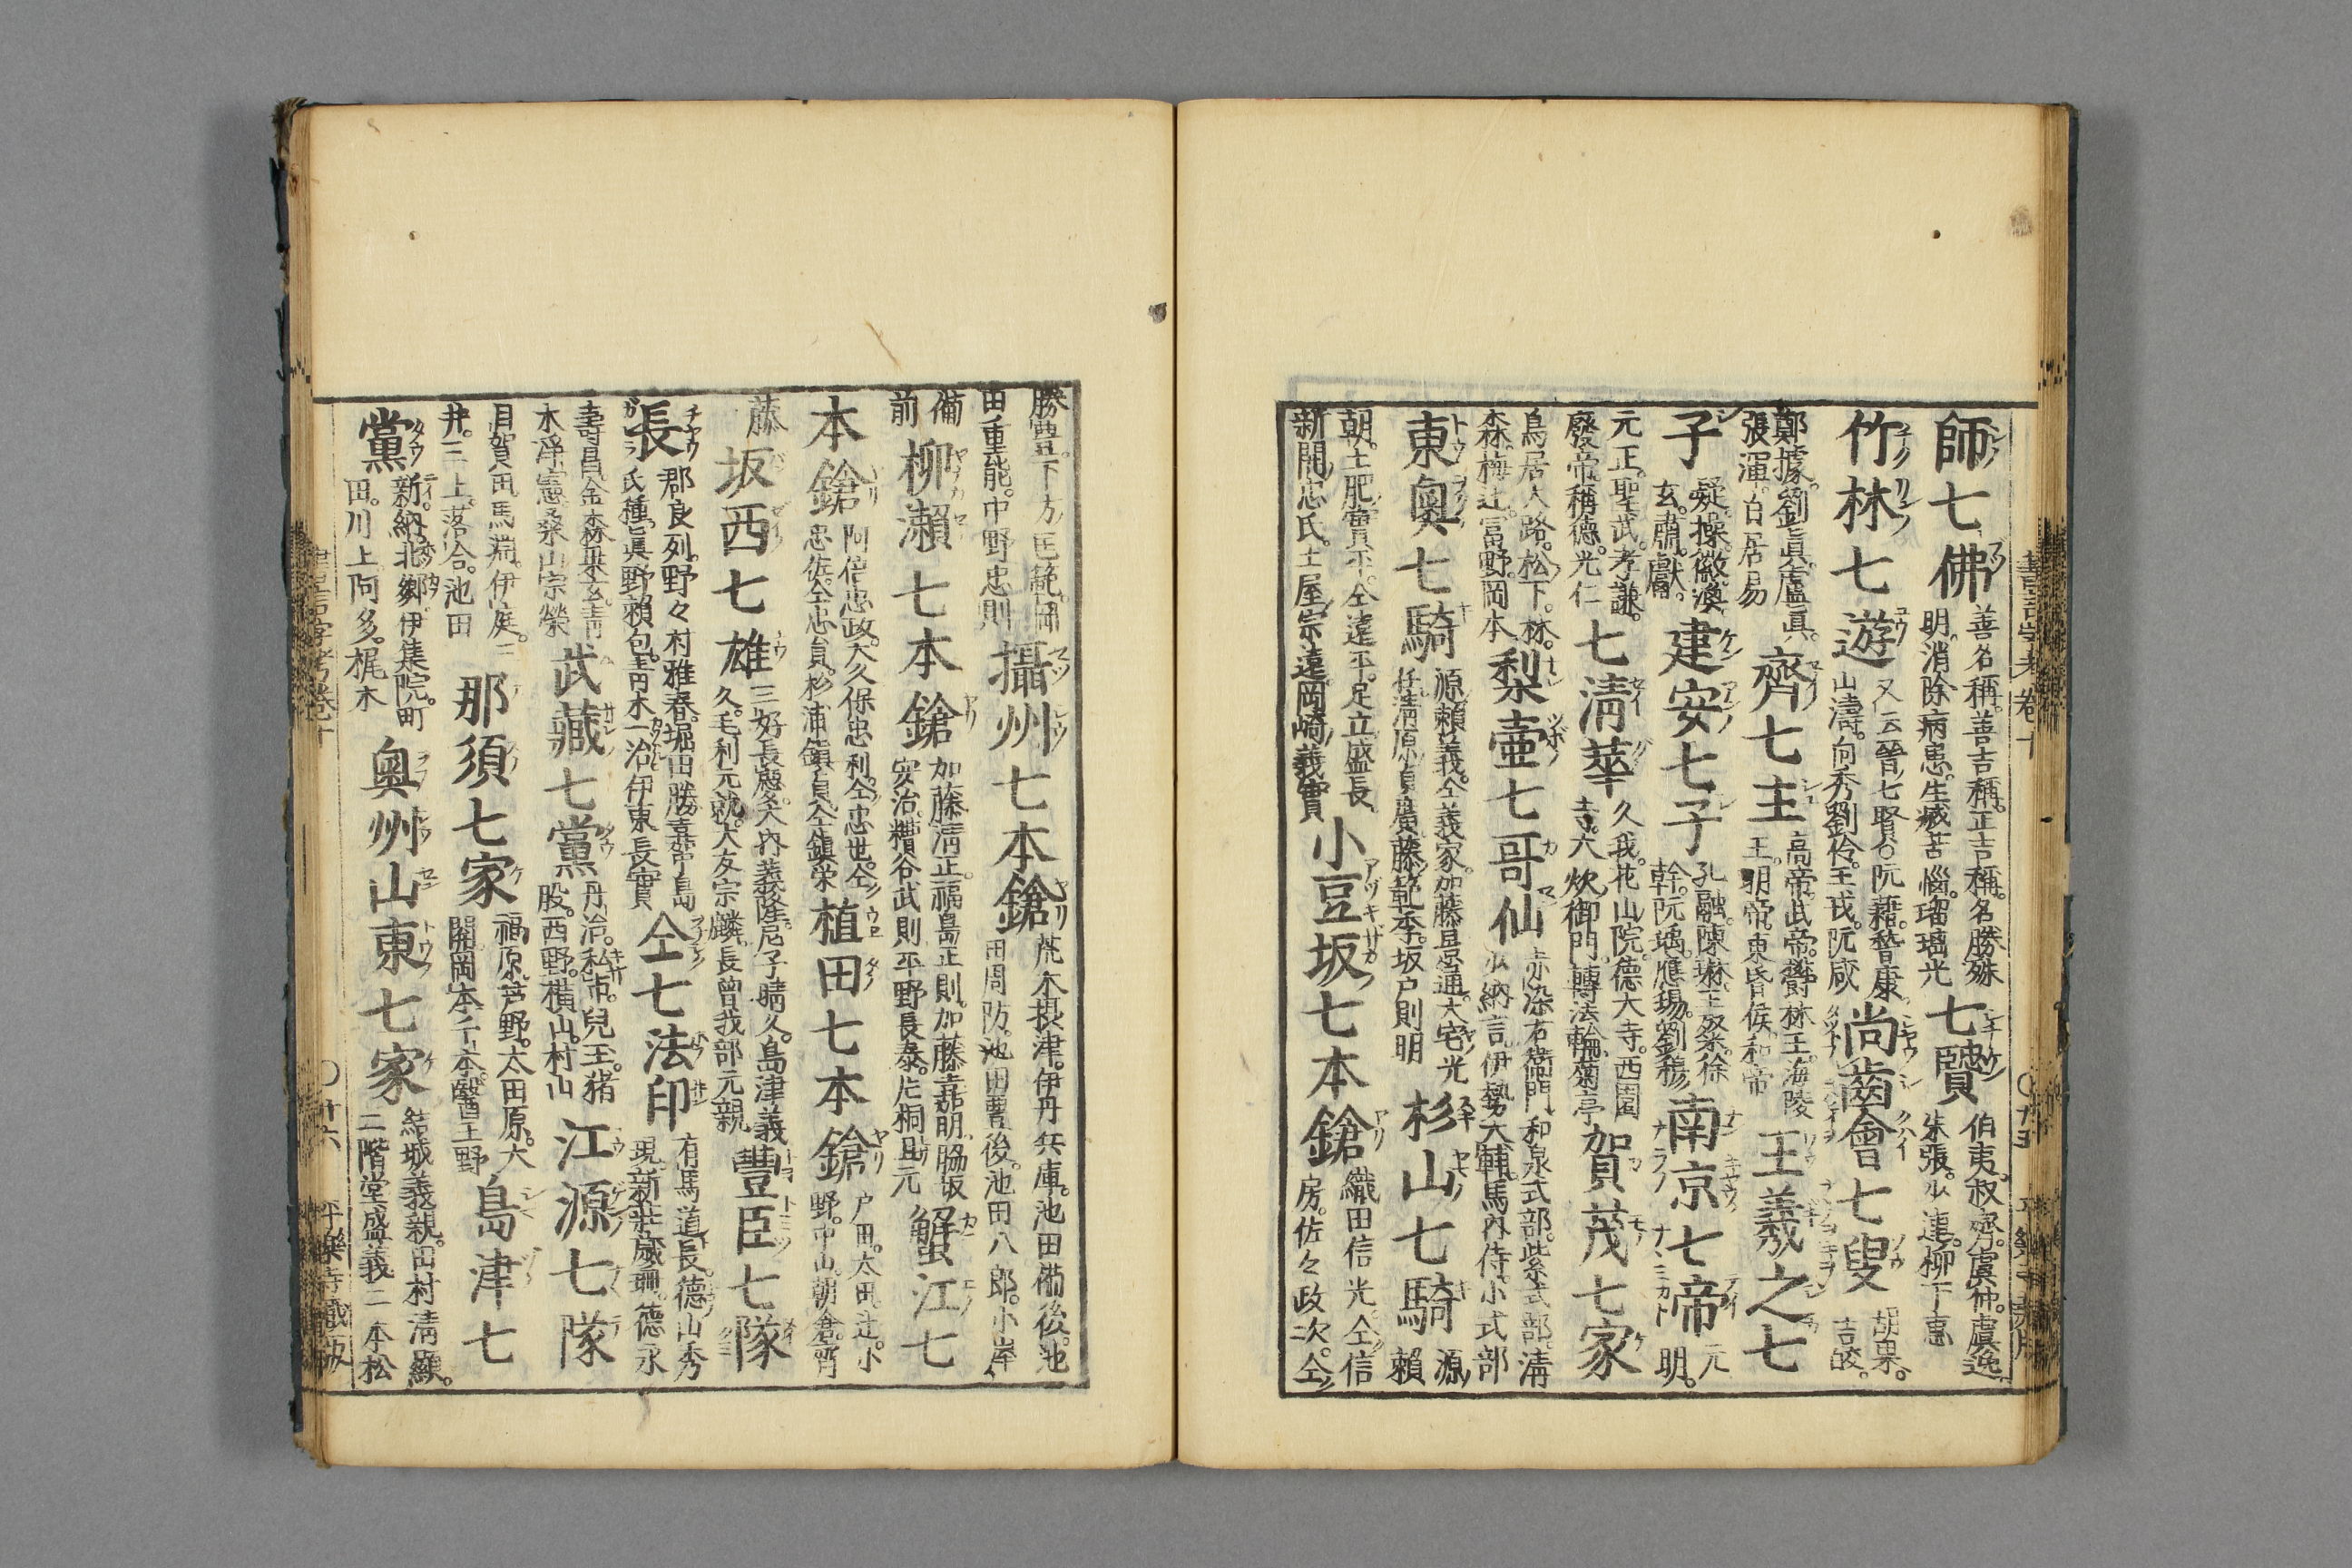 師七佛 善名稱。善吉稱。正吉稱。名勝殊明。消除病患。生臧苦惱。瑠璃光 七賢 伯夷。叔齊。虞仲。虞逸。朱張。少連。柳下惠
竹林七遊 又云晉七賢。阮籍。嵆康。山濤。向秀。劉伶。王戎。阮咸 尚齒會七叟 胡杲。吉皎。
鄭據。劉眞。盧眞。張渾。白居易 齊七主 高帝。武帝。欝林王。海陵王。明帝。東昏侯。和帝 王羲之七
子 凝。操。徽。渙。玄。肅。獻。 建安七子 孔融。陳琳。王粲。徐幹。阮瑀。應瑒。劉楊 南京七帝 元明。
元正。聖武。孝謙。廢帝。稱德。光仁 七淸華 久我。花山院。德大寺。西園寺。大炊御門。轉法輪。菊亭 賀茂七家
鳥居大路。松下。林。森。梅辻。富野。岡本 梨壺七哥仙 赤染右衞門。和泉式部。紫式部。淸少納言。伊勢大輔。馬内侍。小式部
東奧七騎 源賴義。仝義家。加藤景通。大宅光任。淸原貞廣。藤範季。坂戸則明 杉山七騎 源賴
朝。土肥實平。仝遠平。足立盛長。新開忠氏。土屋宗遠。岡崎義實 小豆坂七本鎗 織田信光。仝信房。佐々政次。仝
勝豊。下方匡範。岡田重能。中野忠則 攝州七本鎗 荒木摂津。伊丹兵庫。池田備後。池田周防。池田豊後。池田八郎。小岸
備前 柳瀬七本鎗 加藤淸正。福島正則。加藤嘉明。脇坂安治。糟谷武則。平野長泰。片桐且元 蟹江七
本鎗 阿倍忠政。大久保忠利。仝忠世。仝忠佐。仝忠貟。杉浦鎭貞。仝鎮栄 植田七本鎗 戸田。太田。辻。小野。中山。朝倉。齊
藤 坂西七雄 三好長慶。大内義隆。尼子晴久。毛利元就。大友宗麟。長曾我部元親。島津義 豊臣七隊
長 郡良列。野々村雅春。堀田勝嘉。中島氏種。眞野賴包。靑木一治。伊東長實 仝七法印 有馬道長。德山秀現。新莊歳珊。德永
壽昌。金森 木淨憲。桑山宗榮 武藏七黨 丹治。私市。兒玉。猪股。西野。横山。村山 江源七隊
目賀田。馬淵。伊庭。三井。三上。落合。池田 那須七家 福原。芦野。太田原。大關。岡本。千本。醫王野 島津七
黨 新納。北郷。伊集院。町田。川上。阿多。梶木 奧州山東七家 結城義親。田村淸顯。二階堂盛義。二本松